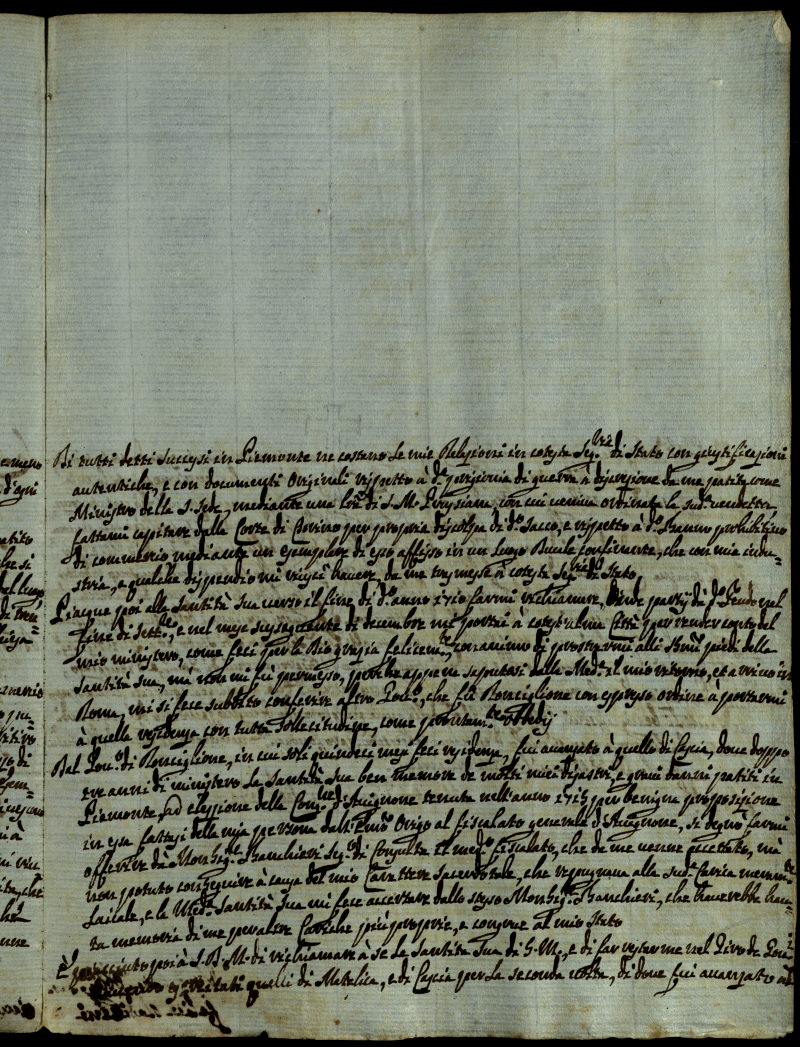 Di tutti detti successi in Piemonte ne costano le mie Relazioni in cotesta Seg.ria di Stato con giustificazioni
autentiche, e con documenti Originali rispetto à d.a prigionia di guerra à discrezione da me patita come
Ministro della S. Sede, mediante una di S. M. con cui veniva ordinata la sud.a
fattami capitare dalla Corte di Torino per propria discolpa di d.o Sacco, e rispetto à d.o Banno prohibitivo
di commercio mediante un esemplare di esso affisso in un luogo confinante, che con mia indu-
stria, e qualche dispendio mi riuscì havere, da me trasmesso à cotesta Seg.ria di Stato
Piacque poi alla Santità Sua verso il fine di d.o anno 1710 farmi richiamare, onde partij di d.o Feudo nel
fine di Sett.e, e nel mese susseguente di decembre mi portai à cotest'alma Città per render conto del
mio ministero, come feci per la Dio grazia felicem.te, con animo di prostrarmi alli S.mi piedi della
Santità Sua, mà non mi fù permesso, perche appena saputasi dalla Med.a il mio ritorno, et arrivo in
Roma, mi si fece subbito conferire altro Gov.o, che fù Ronciglione con espresso ordine à portarmi
à quella residenza con tutta sollecitudine, come obbedij
Dal Gov.o di Ronciglione, in cui soli quindeci mesi feci residenza, fui avanzato à quello di Cascia, dove doppo
tre anni di ministero la Santità Sua ben memore de molti miei disastri, e gravi danni patiti in
Piemonte, ad elezzione della Cong.ne d'Avignone tenuta nell'anno 1715 per benigna proposizione
in essa fattasi della mia persona dall'Em.o Origo al fiscalato generale d'Avignone, si degnò farmi
offerire da Monsig.r Banchieri Seg.rio di Consulta il med.o fiscalato, che da me venne accettato, mà
non potuto conseguire à causa del mio Carattere Sacerdotale, che repugnava alla sud.a Carica meram.te
Laicale, e la Med.a Santità Sua mi fece accertare dallo stesso Monsig.r Banchieri, che haverebbe havu-
ta memoria di me per altre Cariche più proprie, e congrue al mio stato
È piacciuto poi à S. D. M. di richiamare à se la Santità Sua di S. M., e di far restarme nel Giro de Gov.i
esercitati quelli di Matelica, e di Cascia per la seconda volta, di dove fui avanzato al